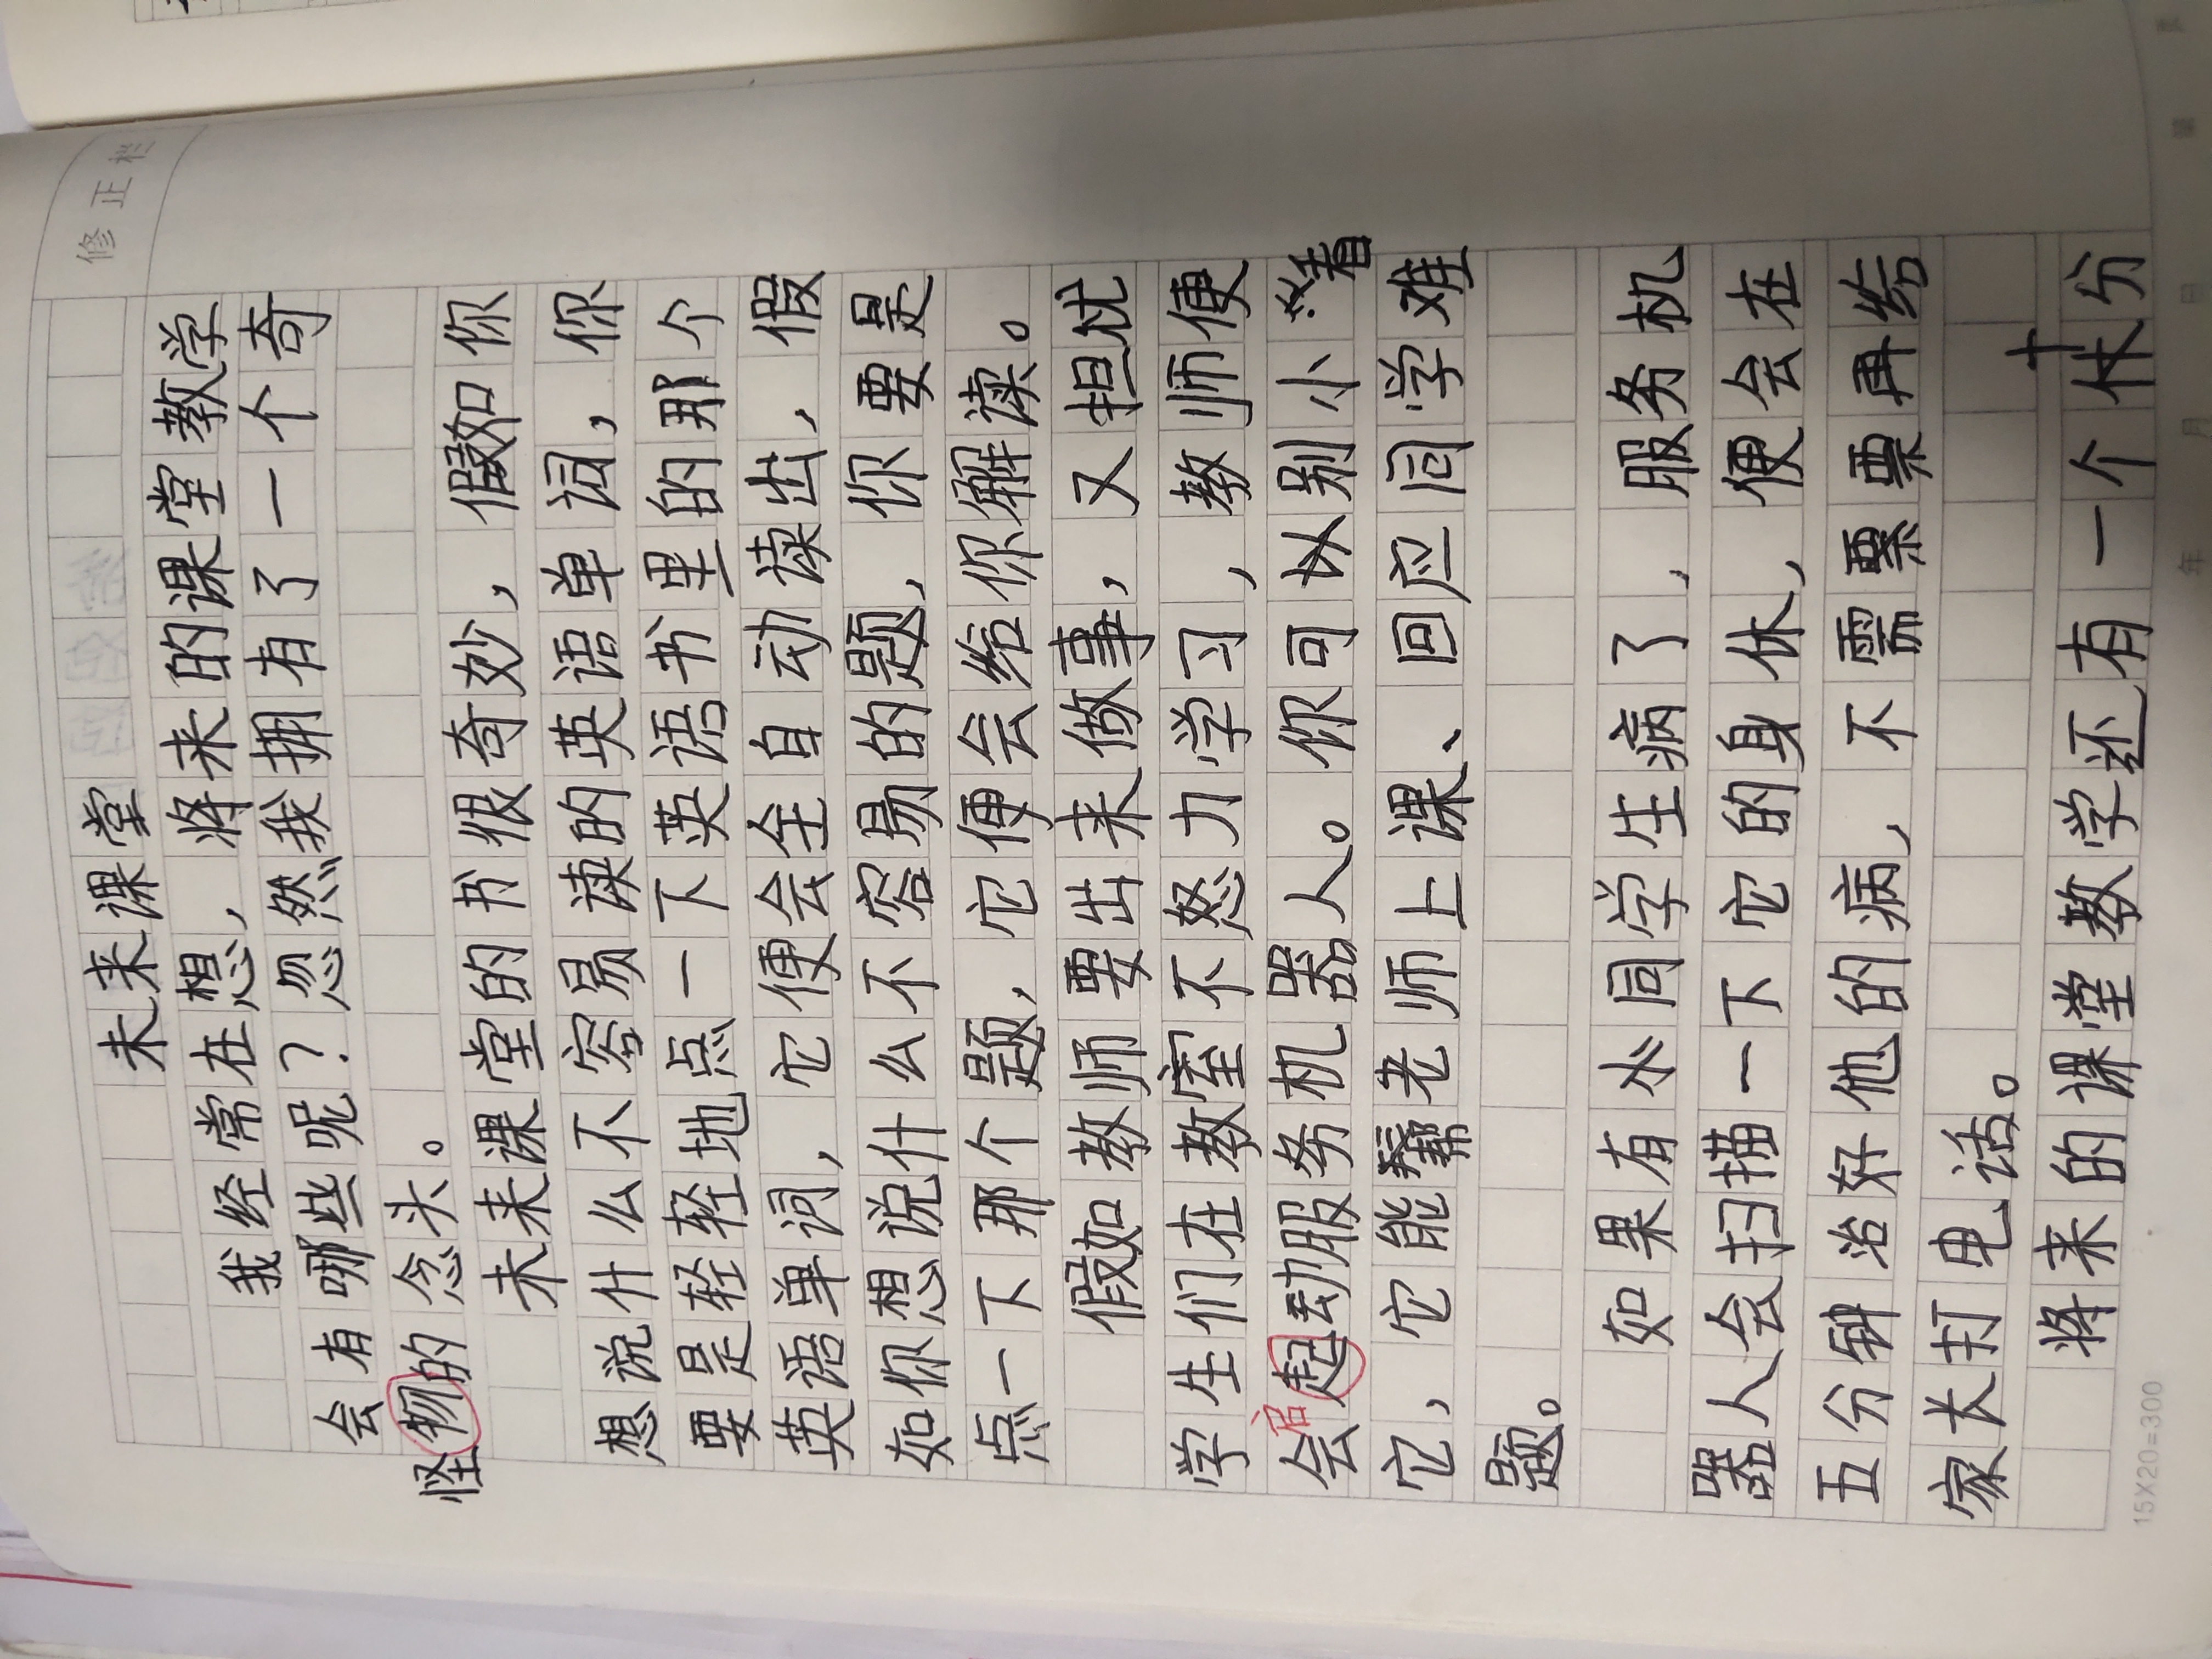 修正栏
未来课堂
我经常在想，将来的课堂教学
会有哪些呢？忽然我拥有了一个奇
怪物的念头。
未来课堂的书很奇妙，假如你
想说什么不容易读的英语单词，你
要是轻轻地点一下英语书里的那个
英语单词，它便会全自动读出，假
如你想说什么不容易的题，你要是
点一下那个题，它便会给你解读。
假如教师要出来做事，又担忧
学生们在教室不怒力学习，教师便
会启起动服务机器人。你可以别小看
它，它能帮老师上课、回应同学难
题。
如果有水同学生病了，服务机
器人会扫描一下它的身休，便会在
五分钟治好他的病，不需要再给
家长打电话。
将来的课堂教学还有一个休分
15X20=300
年 月 日